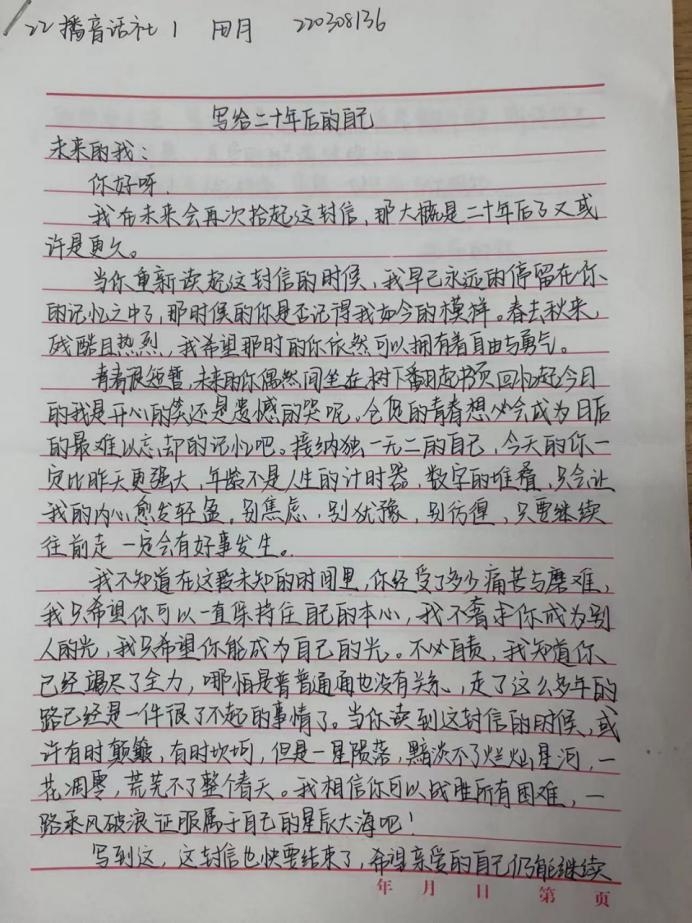 22播音话社1 田月 220308136
写给二十年后的自己
未来的我：
你好呀，
我在未来会再次拾起这封信，那大概是二十年后了又或
许是更久。
当你重新读起这封信的时候，我早已永远的停留在你
的记忆之中了，那时候的你是否记得我如今的模样。春去秋来，
残酷且热烈，我希望那时的你依然可以拥有着自由与勇气。
青春很短暂，未来的你偶然间坐在树下翻起书页回忆起今日
的我是开心的笑还是遗憾的哭呢，仓促的青春想必会成为日后
的最难以忘却的记忆吧。接纳独一无二的自己，今天的你一
定比昨天更强大，年龄不是人生的计时器，数字的堆叠，只会让
我的内心愈发轻盈，别焦虑，别犹豫，别彷徨，只要继续
往前走一定会有好事发生。
我不知道在这段未知的时间里，你经受了多少痛苦与磨难，
我只希望你可以一直保持住自己的本心，我不奢求你成为别
人的光，我只希望你能成为自己的光。不必自责，我知道你
已经竭尽了全力，哪怕是普普通通也没有关系，走了这么多年的
路已经是一件很了不起的事情了。当你读到这封信的时候，或
许有时颠簸，有时坎坷，但是一星陨落，黯淡不了灿烂星河，一
花凋零，荒芜不了整个春天。我相信你可以战胜所有困难，一
路乘风破浪征服属于自己的星辰大海吧！
写到这，这封信也快要结束了，希望亲爱的自己仍能继续
年 月 日 第 页